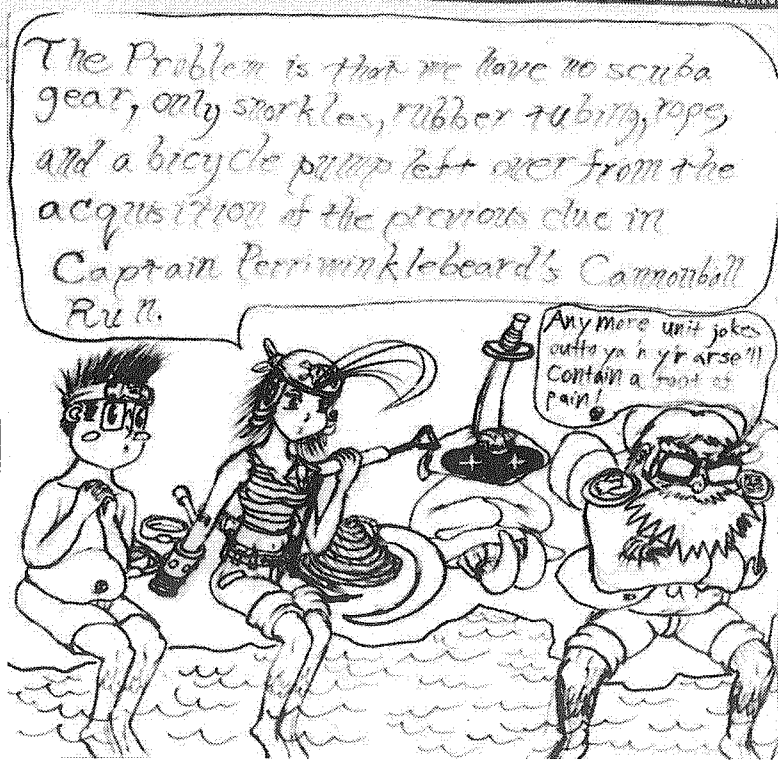 The Problem is that we have no scuba
gear, only snorkles, rubber tubing, rope,
and a bicycle pump left over from the
acquisition of the previous clue in
Captain Perriwinklebeard's Cannonball
Run.
Any more unit jokes
outta ya 'n yr arse'll
Contain a foot of
pain!